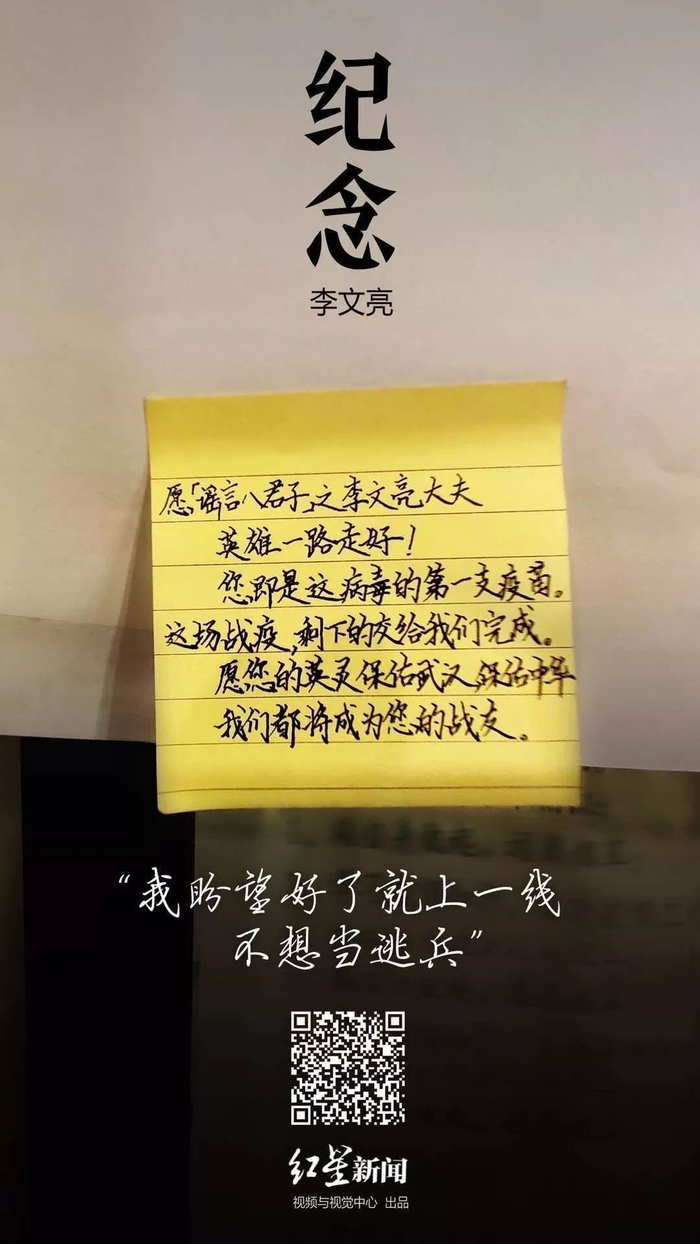 纪
念
李文亮
愿「谣言八君子」之李文亮大夫
英雄一路走好!
您即是这病毒的第一支疫苗。
这场战疫,剩下的交给我们完成。
愿您的英灵保佑武汉,保佑中华
我们都将成为您的战友。
“我盼望好了就上一线
不想当逃兵”
红星新闻
视频与视觉中心 出品